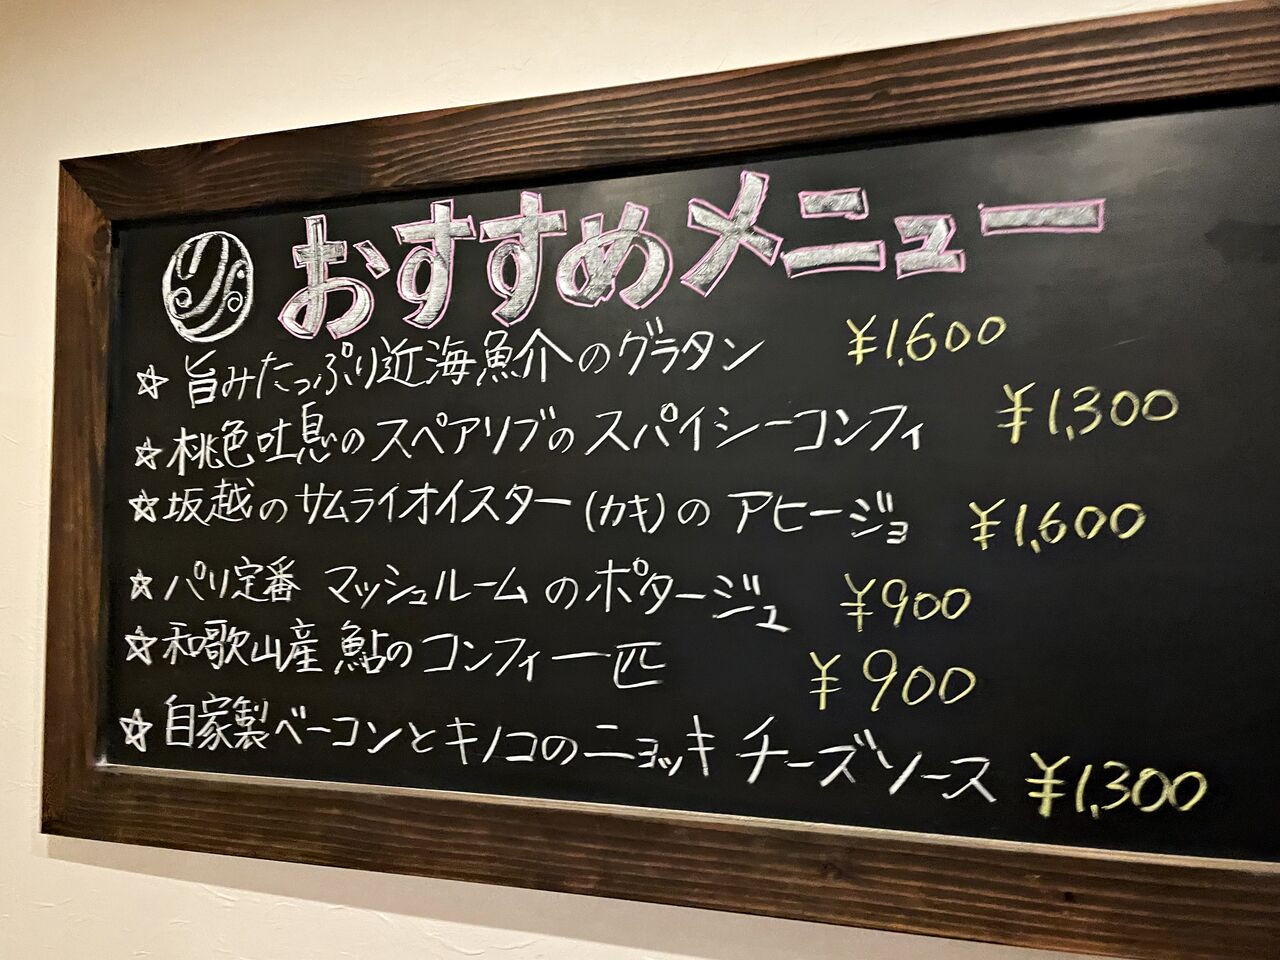 おすすめメニュー
☆旨みたっぷり近海魚介のグラタン ¥1,600
☆桃色吐息のスペアリブのスパイシーコンフィ ¥1,300
☆坂越のサムライオイスター(カキ)のアヒージョ ¥1,600
☆パリ定番 マッシュルームのポタージュ ¥900
☆和歌山産 鮎のコンフィ一匹 ¥900
☆自家製ベーコンとキノコのニョッキ チーズソース ¥1,300